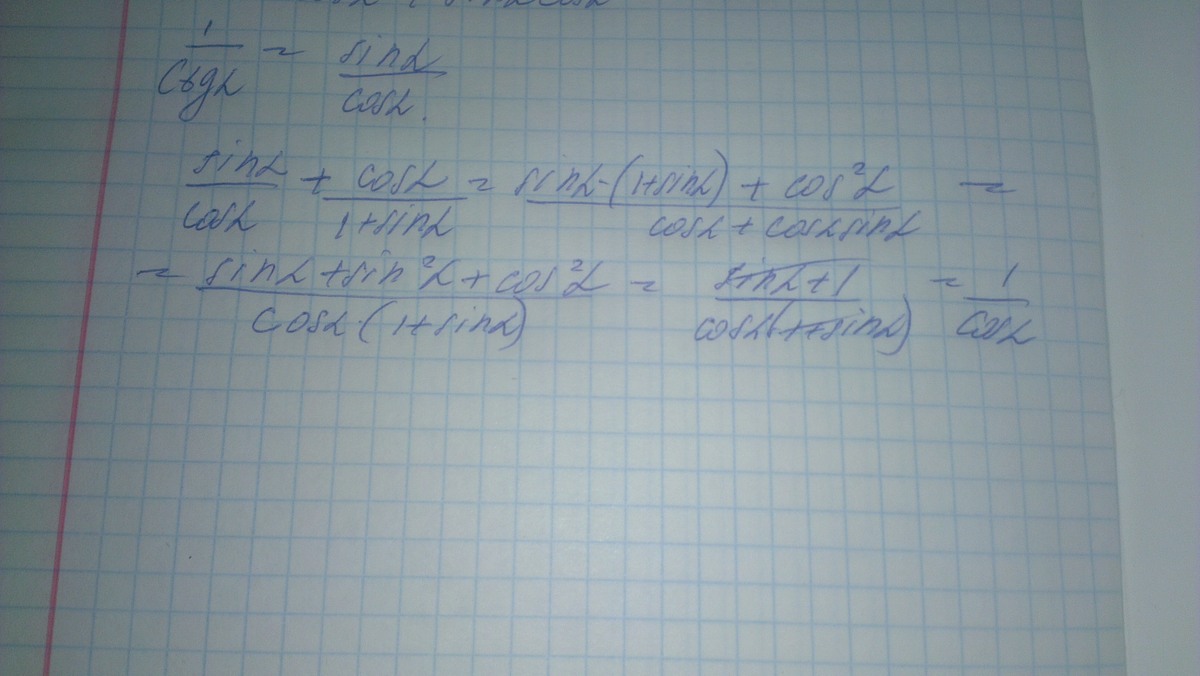 1/ctgα = sinα/cosα.
sinα/cosα + cosα/1+sinα = sinα·(1+sinα)+cos²α/cosα+cosαsinα =
= sinα+sin²α+cos²α/cosα·(1+sinα) = sinα+1/cosα(1+sinα) = 1/cosα